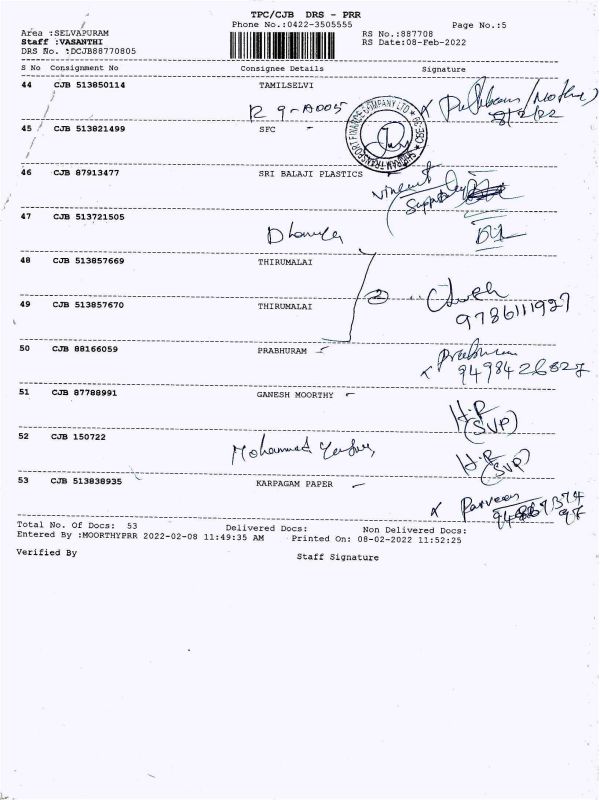 TPC/CJB DRS - PRR
Phone No.:0422-3505555 Page No.:5
Area :SELVAPURAM RS No.:887708
Staff :VASANTHI RS Date:08-Feb-2022
DRS No. :DCJB88770805
S No Consignment No Consignee Details Signature
44 CJB 513850114 TAMILSELVI
R 9-A005
8/2/22
45 CJB 513821499 SFC
46 CJB 87913477 SRI BALAJI PLASTICS
Vincent
47 CJB 513721505
48 CJB 513857669 THIRUMALAI
2
49 CJB 513857670 THIRUMALAI
9786111927
50 CJB 88166059 PRABHURAM
Prabhuram
51 CJB 87788991 GANESH MOORTHY
(SVP)
52 CJB 150722
Mohammed
(SVP)
53 CJB 513838935 KARPAGAM PAPER
Parveen
Total No. Of Docs: 53 Delivered Docs: Non Delivered Docs:
Entered By :MOORTHYPRR 2022-02-08 11:49:35 AM Printed On: 08-02-2022 11:52:25
Verified By Staff Signature